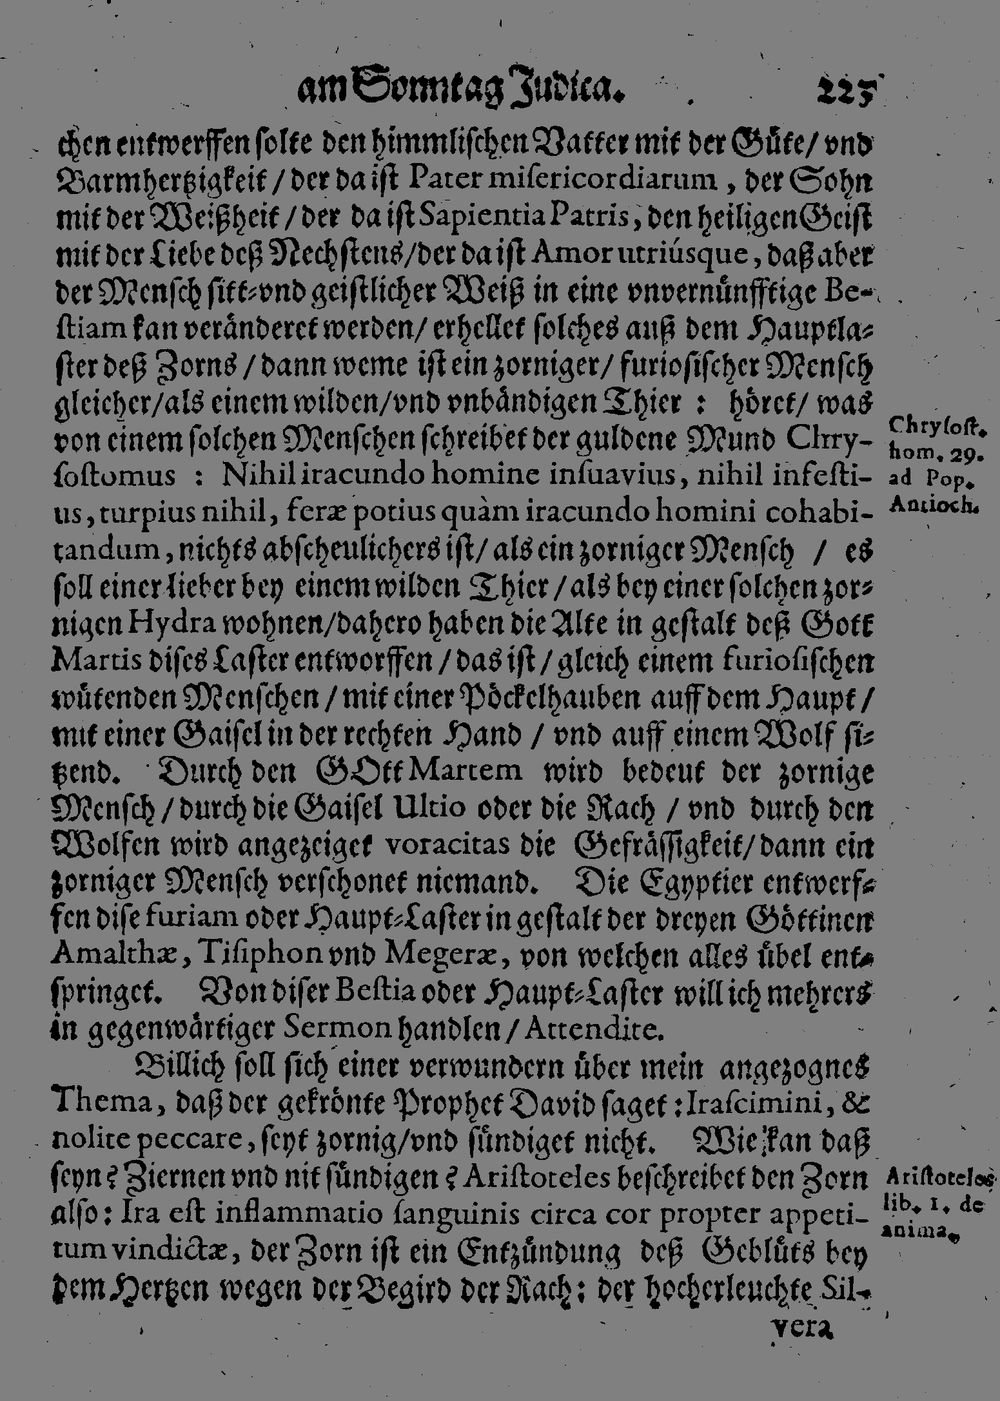 am Sonntag Judica. 225
chen entwerffen solte den himmlischen Vatter mit der Güte/ vnd
Barmhertzigkeit / der da ist Pater misericordiarum , der Sohn
mit der Weißheit / der da ist Sapientia Patris, den heiligen Geist
mit der Liebe deß Nechstens/der da ist Amor utriúsque, daß aber
der Mensch sitt-vnd geistlicher Weiß in eine vnvernünfftige Be-
stiam kan veränderet werden/ erhellet solches auß dem Hauptla-
ster deß Zorns / dann weme ist ein zorniger/ furiosischer Mensch
gleicher/als einem wilden/vnd vnbändigen Thier : höret/ was
von einem solchen Menschen schreibet der guldene Mund Chry-
sostomus : Nihil iracundo homine insuavius, nihil infesti-
us, turpius nihil, feræ potius quàm iracundo homini cohabi-
tandum, nichts abscheulichers ist/ als ein zorniger Mensch / es
soll einer lieber bey einem wilden Thier / als bey einer solchen zor-
nigen Hydra wohnen/dahero haben die Alte in gestalt deß Gott
Martis dises Laster entworffen / das ist / gleich einem furiosischen
wütenden Menschen / mit einer Pöckelhauben auff dem Haupt /
mit einer Gaisel in der rechten Hand / vnd auff einem Wolf si-
tzend. Durch den GOtt Martem wird bedeut der zornige
Mensch / durch die Gaisel Ultio oder die Rach / vnd durch den
Wolfen wird angezeiget voracitas die Gefrässigkeit/ dann ein
zorniger Mensch verschonet niemand. Die Egyptier entwerf-
fen dise furiam oder Haupt-Laster in gestalt der dreyen Göttinen
Amalthæ, Tisiphon vnd Megeræ, von welchen alles übel ent-
springet. Von diser Bestia oder Haupt-Laster will ich mehrers
in gegenwärtiger Sermon handlen / Attendite.
Billich soll sich einer verwundern über mein angezognes
Thema, daß der gekrönte Prophet David saget : Irascimini, &
nolite peccare, seyt zornig/vnd sündiget nicht. Wie kan daß
seyn? Ziernen vnd nit sündigen? Aristoteles beschreibet den Zorn
also: Ira est inflammatio sanguinis circa cor propter appeti-
tum vindictæ, der Zorn ist ein Entzündung deß Geblüts bey
dem Hertzen wegen der Begird der Rach: der hocherleuchte Sil-
vera
Chrysost.
hom. 29.
ad Pop.
Antioch.
Aristoteles
lib. 1. de
anima.